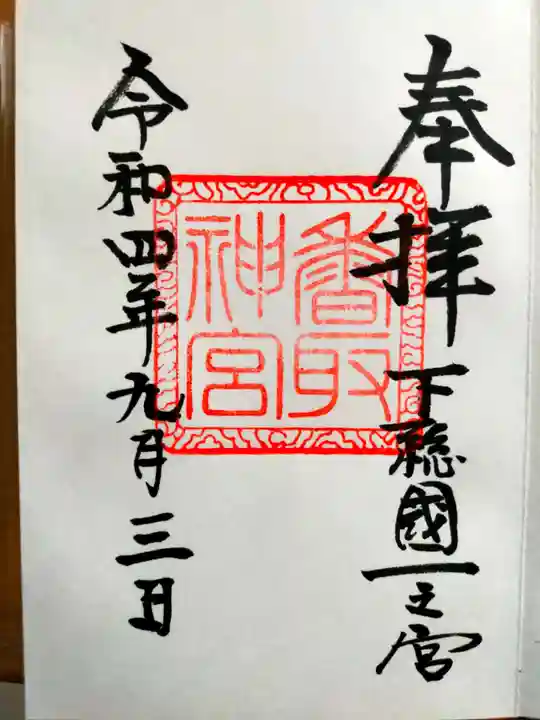 奉拝
下総國一之宮
香取
神宮
令和四年九月三日